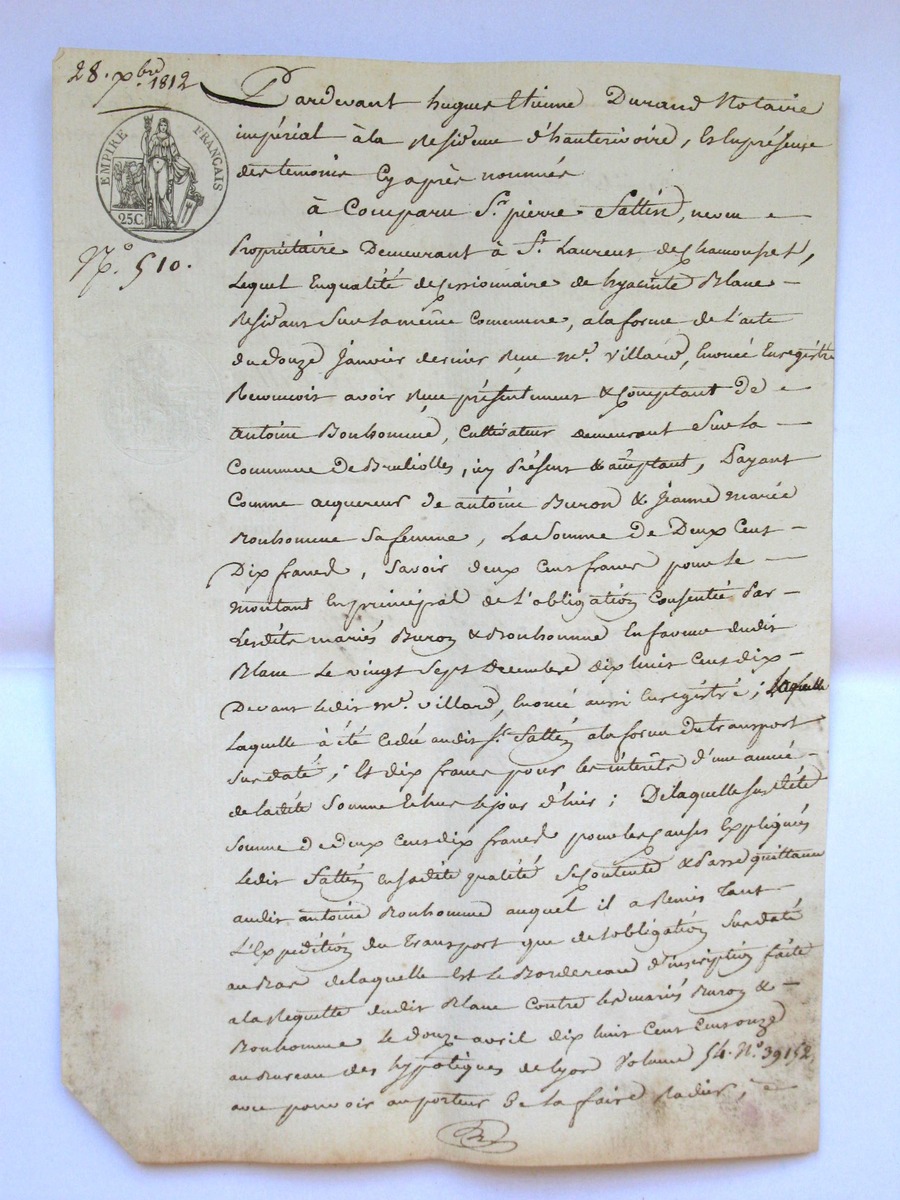 28. xbre 1812
Pardevant hugues Etienne Durand Notaire
impérial à la Residence d'hauterivoire, Et En présence
des temoins Cy après nommés
EMPIRE FRANÇAIS
25C.
à Comparu Sr. pierre Sattin, neveu
N.o 510.
Propriétaire Demeurant à St. Laurent de Chamousset,
Lequel En qualité de Cessionnaire de hyacinte Blanc
Residant Sur la même Commune, a la forme de l'acte
du douze Janvier dernier Reçu me. Villard, Enregistré
Reconnoit avoir Reçu présentement & Comptant de
Antoine Bonhomme, Cultivateur demeurant Sur la
Commune de Brullolles, icy Présent & acceptant, Payant
Comme acquereur de antoine Buron & Jeanne marie
Bonhomme Sa femme, La Somme de Deux Cent
Dix francs, Savoir deux Cent francs pour le
montant En principal de l'obligation Consentie Par
Lesdits mariés Buron & Bonhomme En faveur dudit
Blanc Le vingt Sept Decembre dix huit Cent dix
Devant ledit me. Villard, aussi Enregistré; Laquelle
Laquelle à été Cedée audit Sr. Sattin a la forme du transport
Sus daté; Et dix francs pour les intérêts d'une année
de ladite Somme Echue le jour d'hier; De laquelle Susdite
Somme de deux Cent dix francs pour les Causes Expliquées
Ledit Sattin en Sadite qualité Se Contente & Passe quittance
audit antoine Bonhomme auquel il a Remis Tant
L'Expedition du Transport que de l'obligation Sus daté
au Bas de laquelle Est le Bordereau d'inscription faite
a la Requette dudit Blanc Contre les mariés Buron &
Bonhomme Le douze avril dix huit Cent Onze
au Bureau des hypotèques de Lyon Volume 54. N.o 39152
avec pouvoir au porteur De la faire Radier,